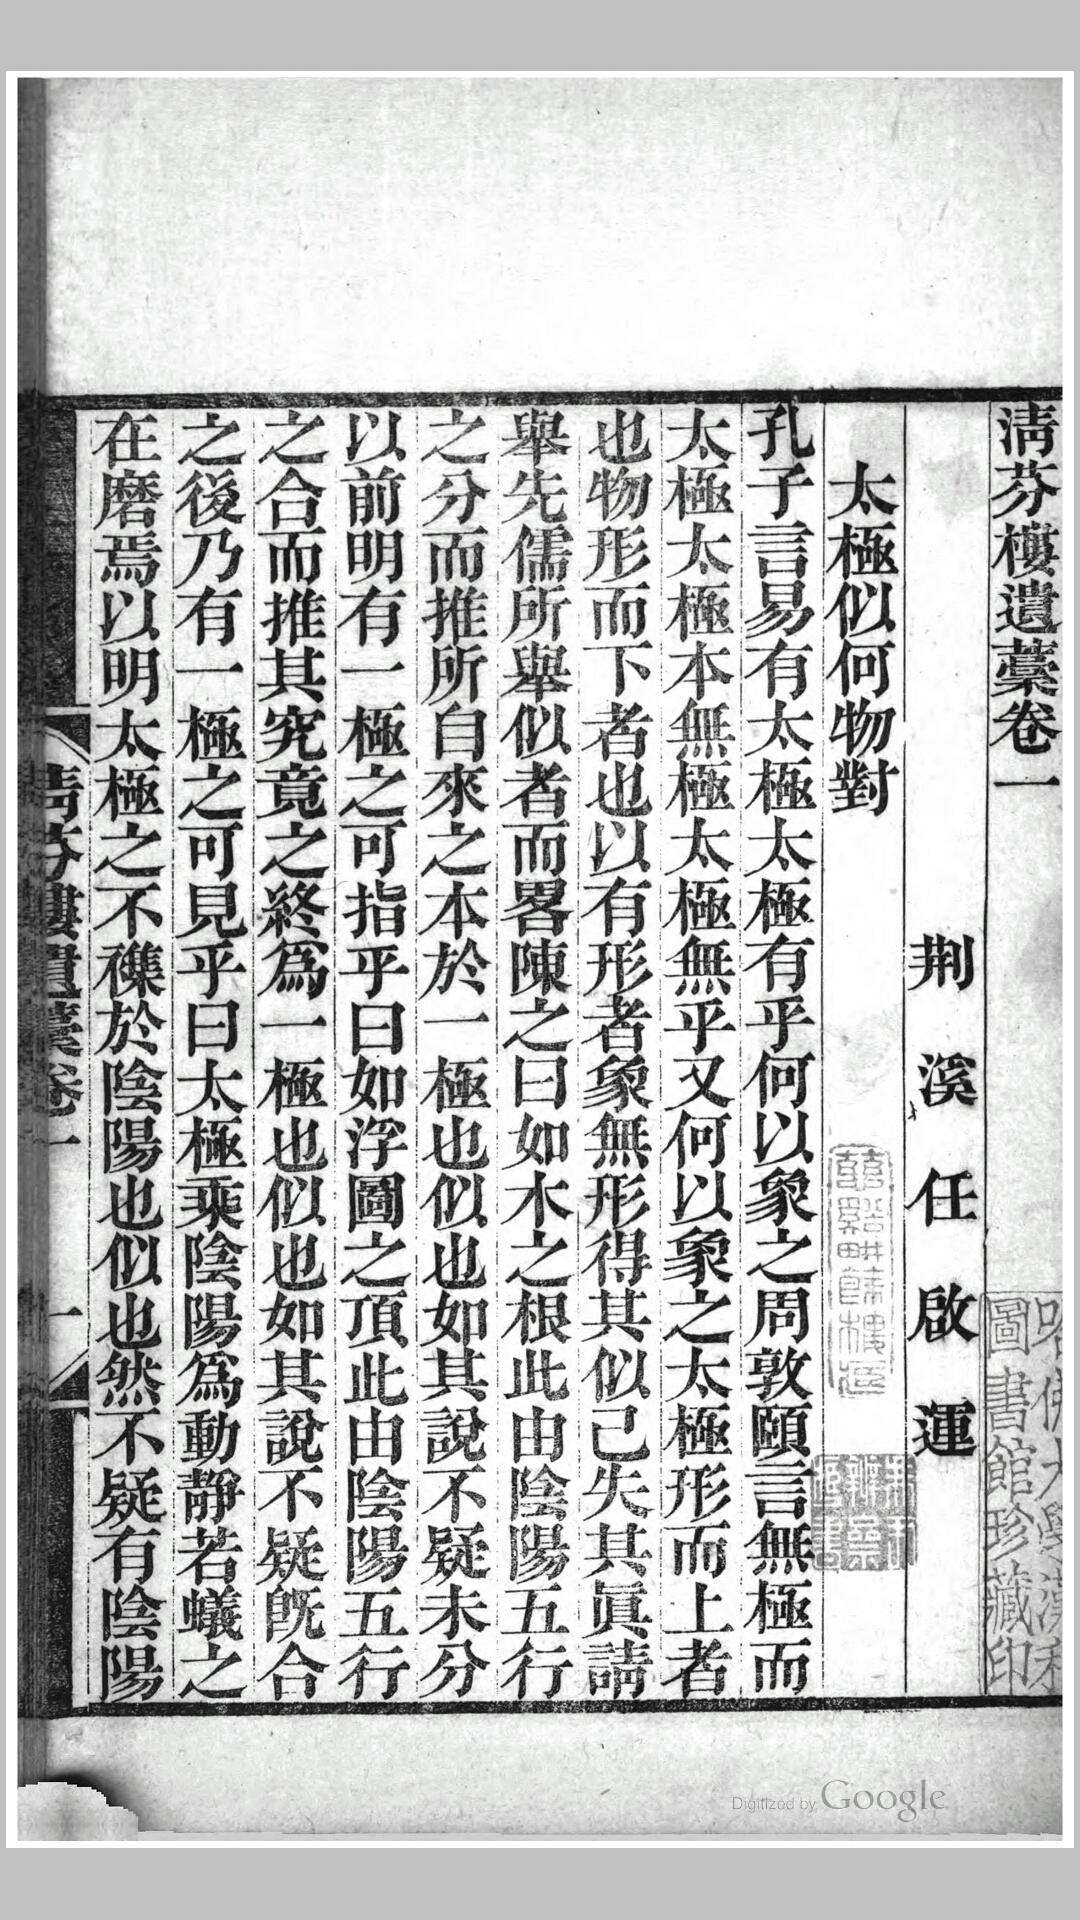 清芬樓遺藁卷一
荆溪任啟運
太極似何物對
孔子言易有太極太極有乎何以象之周敦頤言無極而
太極太極本無極太極無乎又何以象之太極形而上者
也物形而下者也以有形者象無形得其似已失其眞請
舉先儒所舉似者而畧陳之曰如木之根此由陰陽五行
之分而推所自來之本於一極也似也如其說不疑未分
以前明有一極之可指乎曰如浮圖之頂此由陰陽五行
之合而推其究竟之終爲一極也似也如其說不疑旣合
之後乃有一極之可見乎曰太極乘陰陽爲動靜若蟻之
在磨焉以明太極之不襍於陰陽也似也然不疑有陰陽
清芬樓遺藁卷一
一
哈佛大學漢和
圖書館珍藏印
Digitized by Google